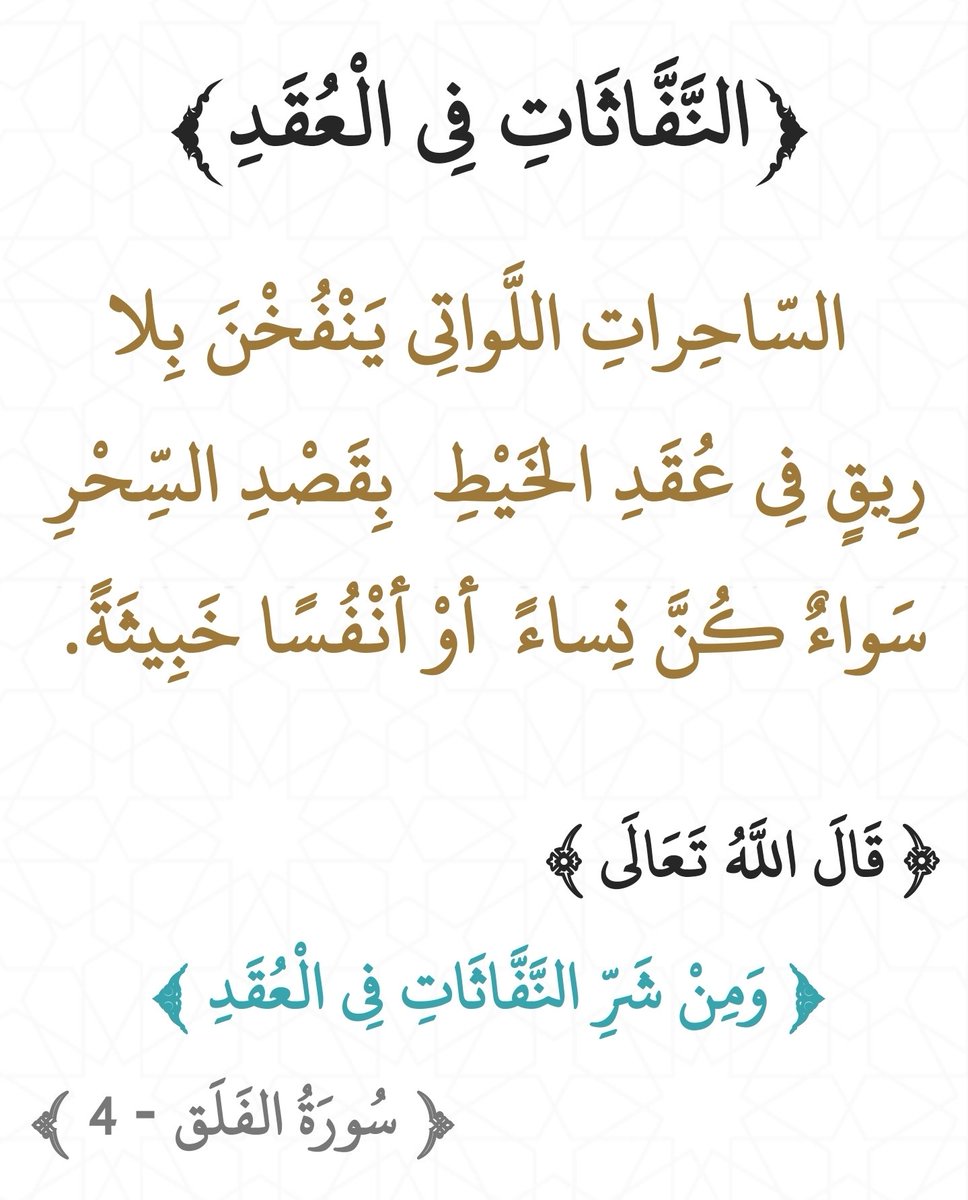 ﴿النَّفَّاثَاتِ فِى الْعُقَدِ﴾
السّاحِراتِ اللَّواتِى يَنْفُخْنَ بِلا
رِيقٍ فِى عُقَدِ الخَيْطِ بِقَصْدِ السِّحْرِ
سَواءٌ كُنَّ نِساءً أوْ أنْفُسًا خَبِيثَةً.
﴿ قَالَ اللَّهُ تَعَالَى ﴾
﴿ وَمِنْ شَرِّ النَّفَّاثَاتِ فِى الْعُقَدِ ﴾
﴿ سُورَةُ الفَلَق - 4 ﴾